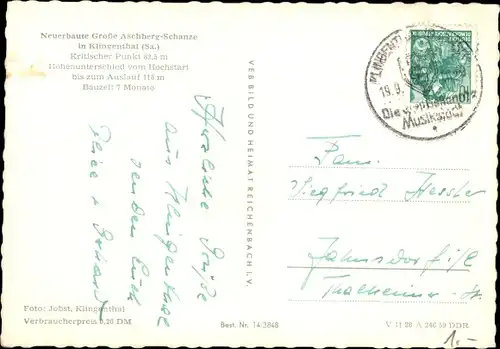 Neuerbaute Große Aschberg-Schanze
in Klingenthal (Sa.)
Kritischer Punkt 82,5 m
Höhenunterschied vom Hochstart
bis zum Auslauf 118 m
Bauzeit 7 Monate
Herzliche Grüße
aus Klingenthal
senden Euch
VEB BILD UND HEIMAT REICHENBACH I. V.
KLINGENTHAL
19.9.
Musikstadt
Fam.
Siegfried Hessler
Jahnsdorf i/E
Thalheimer-St
Foto: Jobst, Klingenthal
Verbraucherpreis 0,20 DM
Best. Nr. 14/3848
V 11 28 A 240 59 DDR
1.-